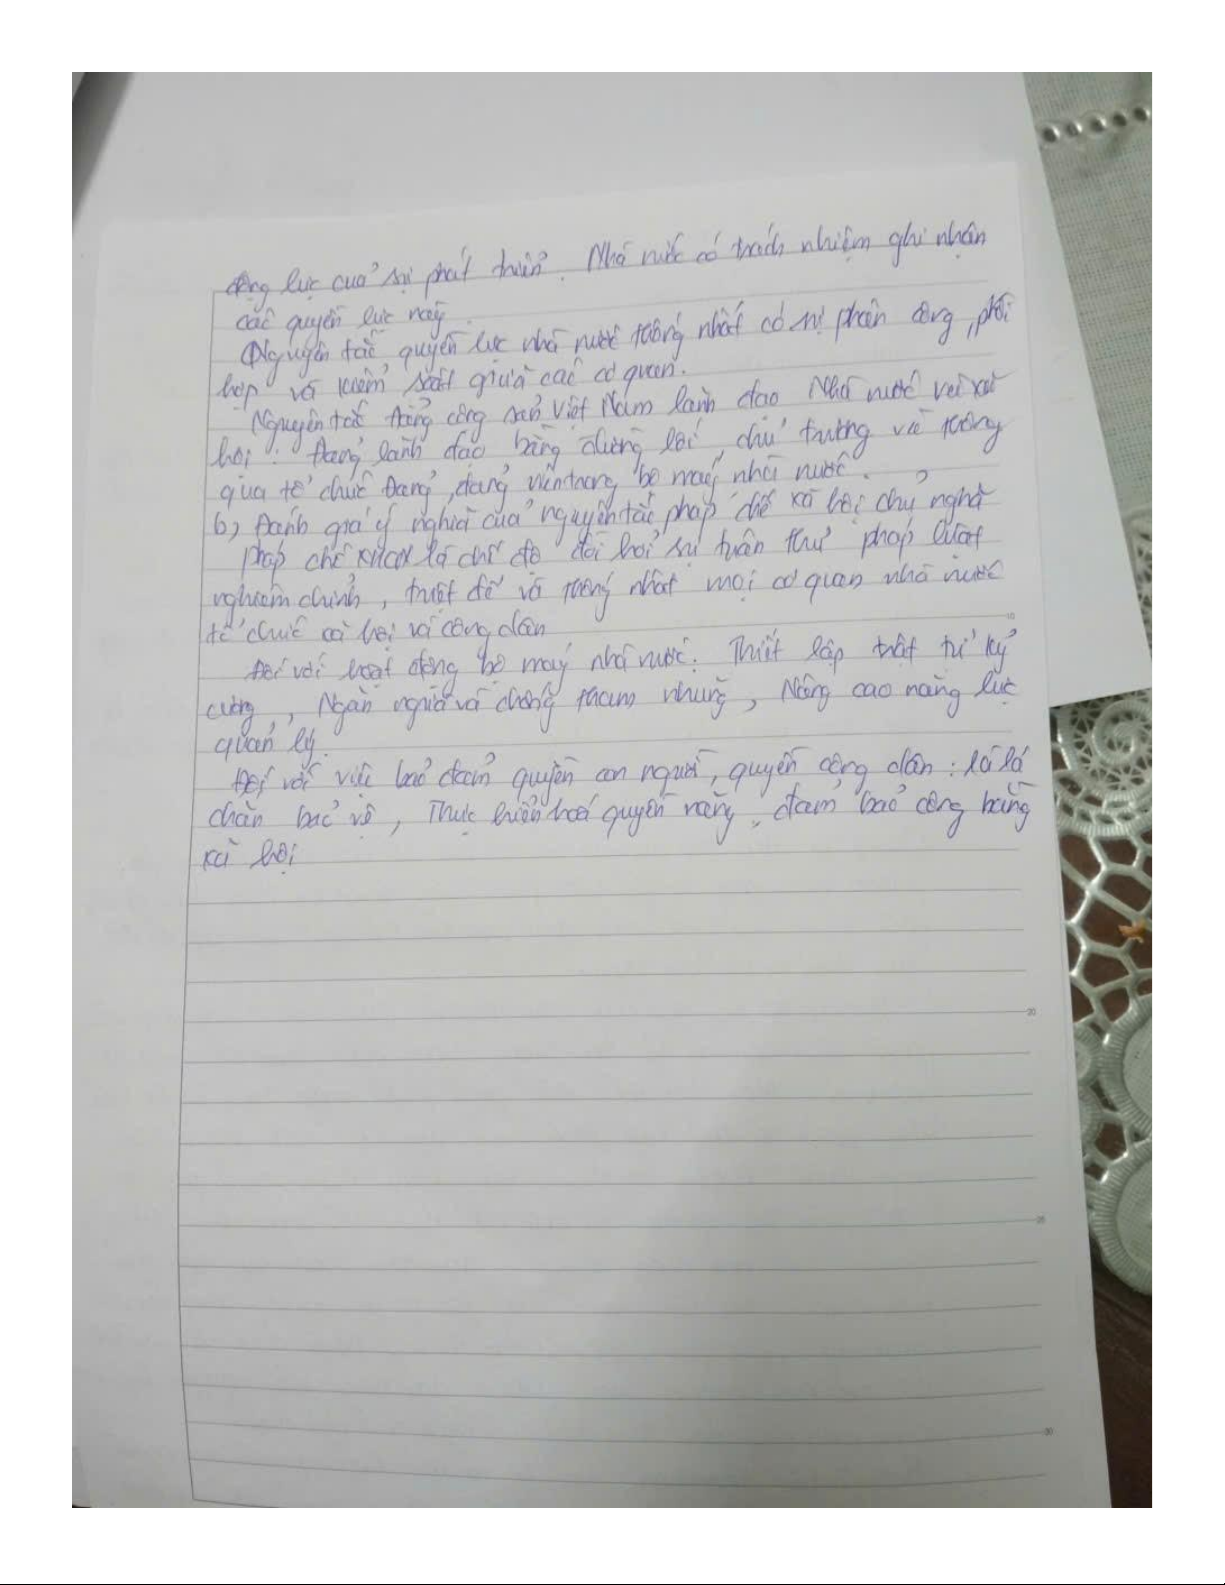 động lực của sự phát triển. Nhà nước có trách nhiệm ghi nhận
các quyền lực này.
Nguyên tắc quyền lực nhà nước thống nhất có sự phân công, phối
hợp và kiểm soát giữa các cơ quan.
Nguyên tắc Đảng cộng sản Việt Nam lãnh đạo Nhà nước và xã
hội: Đảng lãnh đạo bằng đường lối, chủ trương và thông
qua tổ chức Đảng, đảng viên trong bộ máy nhà nước.
b) Đánh giá ý nghĩa của nguyên tắc pháp chế xã hội chủ nghĩa
Pháp chế XHCN là chế độ đòi hỏi sự tuân thủ pháp luật
nghiêm chỉnh, triệt để và thống nhất mọi cơ quan nhà nước
tổ chức xã hội và công dân
Đối với hoạt động bộ máy nhà nước: Thiết lập trật tự kỷ
cương, Ngăn ngừa và chống tham nhũng, Nâng cao năng lực
quản lý.
Đối với việc bảo đảm quyền con người, quyền công dân: là lá
chắn bảo vệ, Thực hiện hoá quyền năng, đảm bảo công bằng
xã hội
10
20
25
30